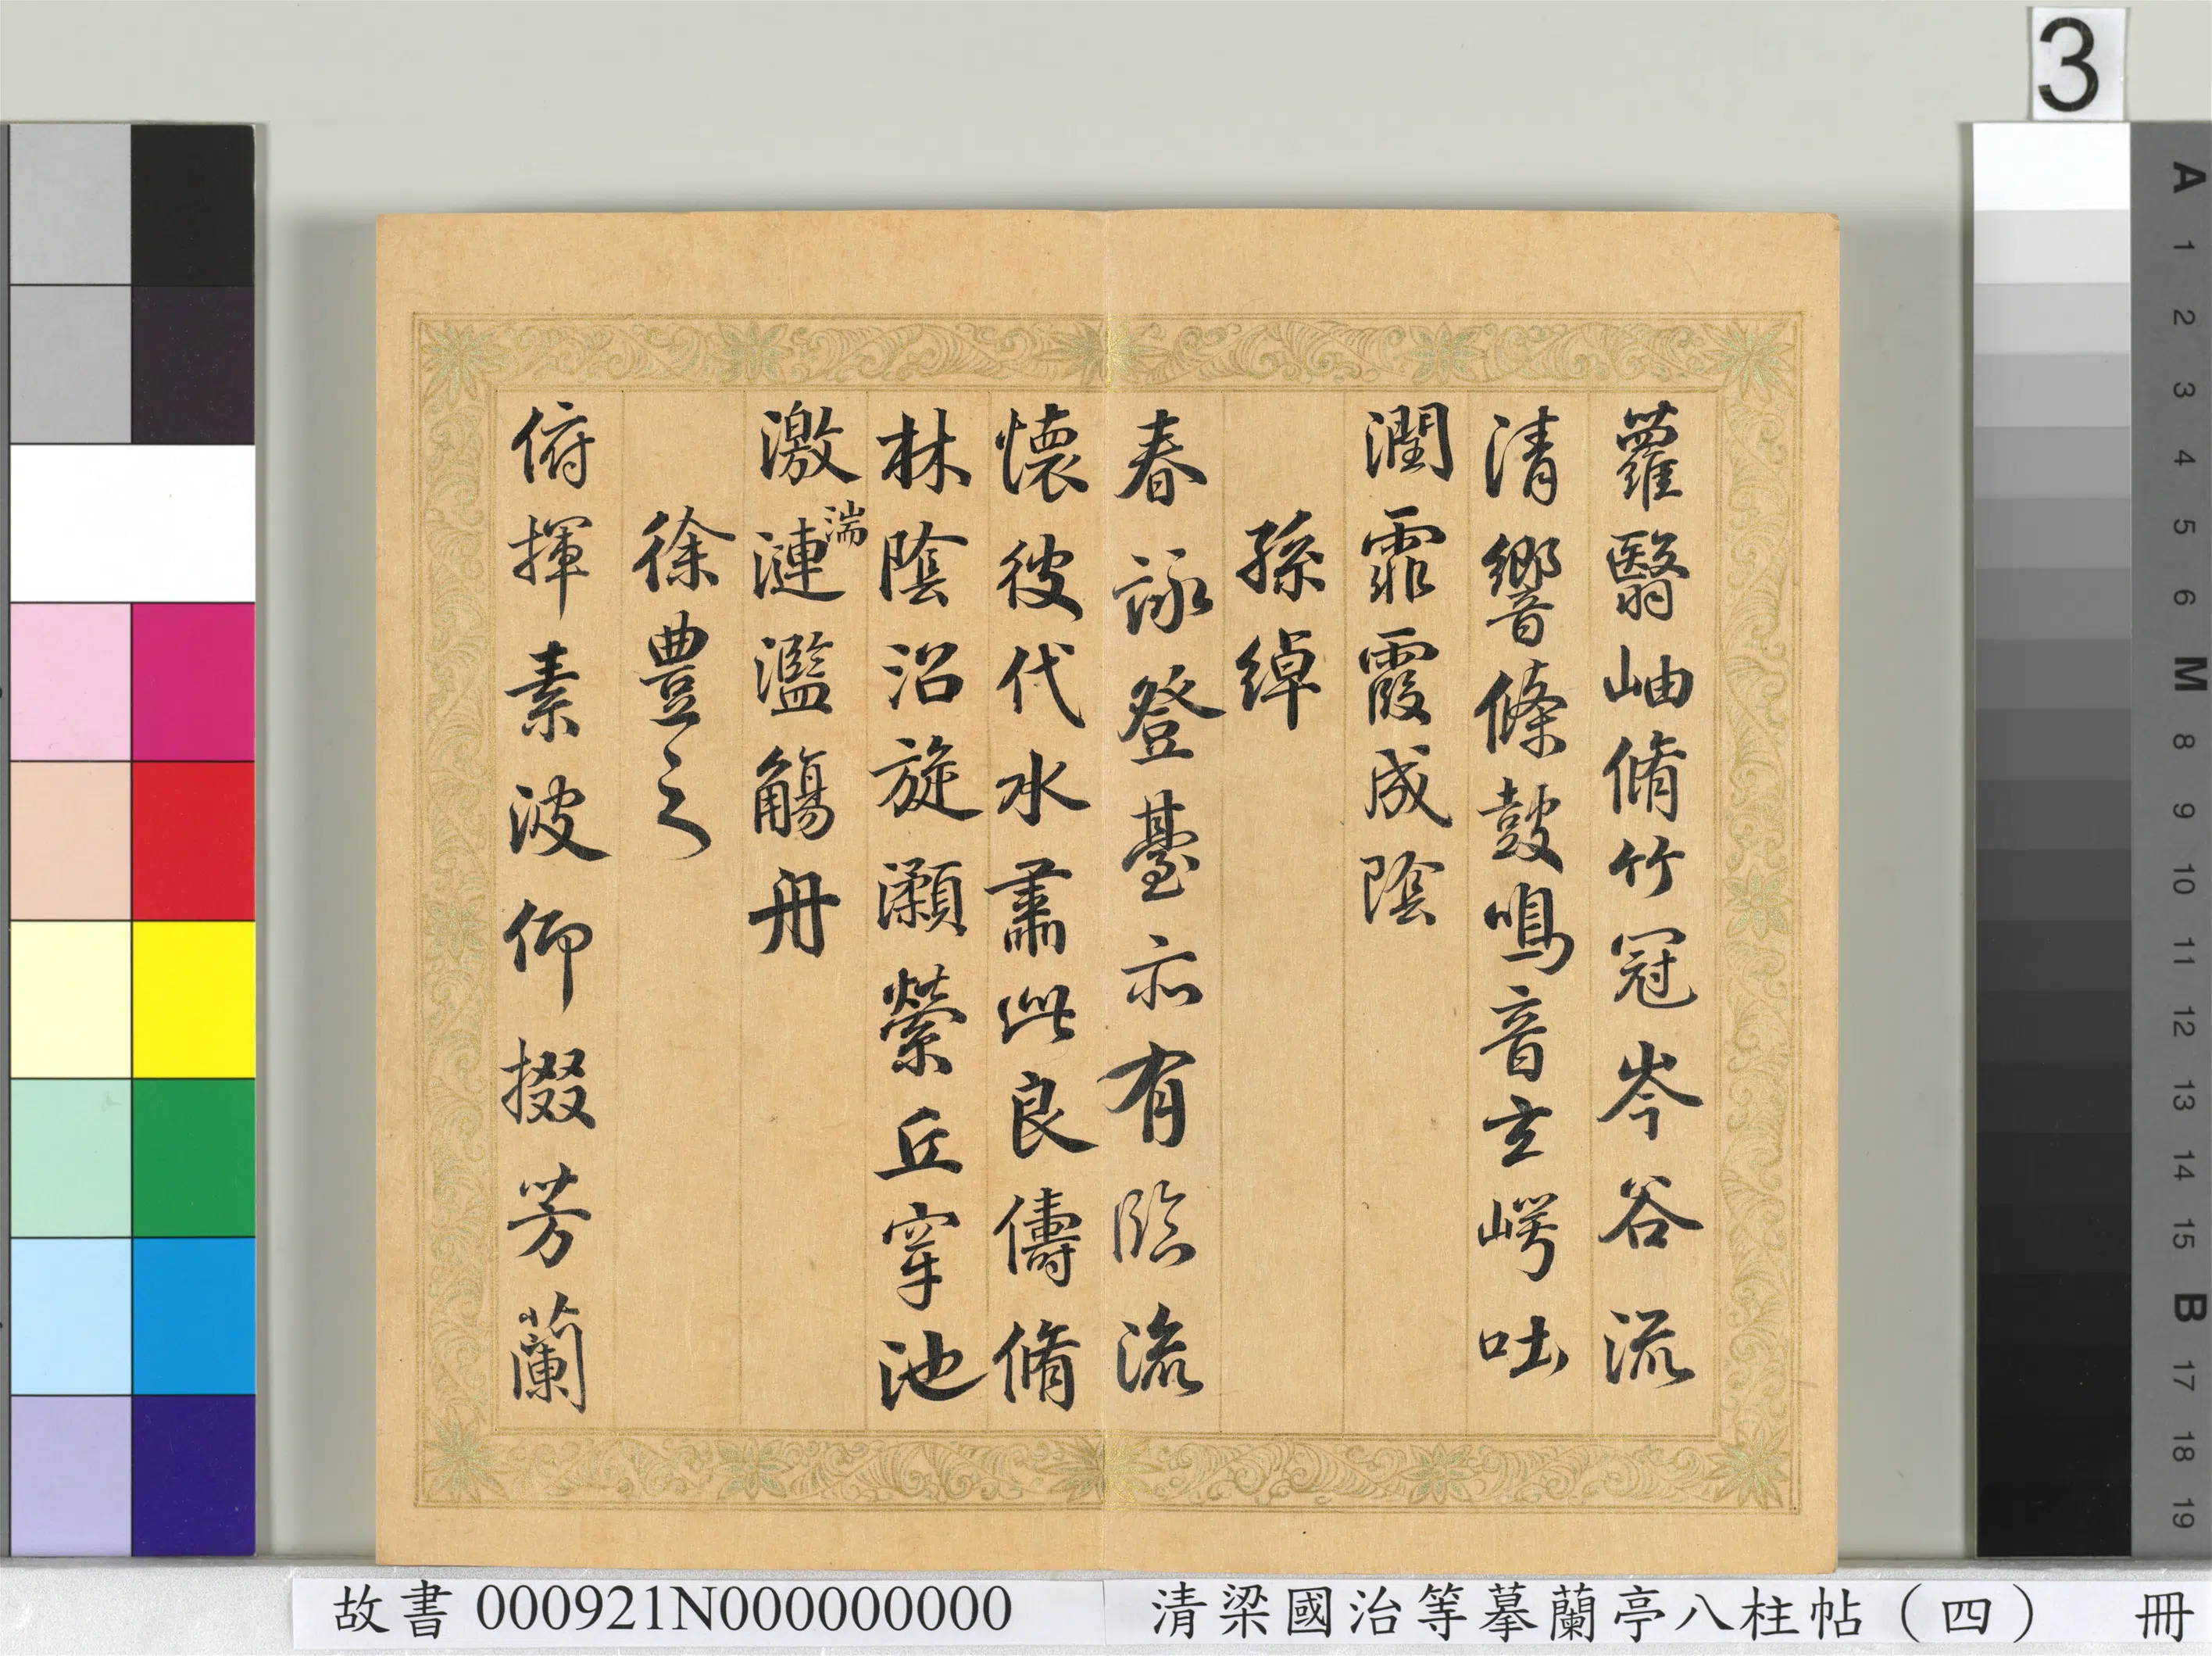 3
蘿翳岫脩竹冠岑谷流
清響條鼓鳴音玄崿吐
潤霏霧成陰
孫綽
春詠登臺亦有臨流
懷彼代水肅此良儔脩
林陰沼旋瀨縈丘穿池
激湍漣濫觴舟
徐豊之
俯揮素波仰掇芳蘭
A
1
2
3
4
5
6
M
8
9
10
11
12
13
14
15
B
17
18
19
故書 000921N000000000 清梁國治等摹蘭亭八柱帖（四） 冊